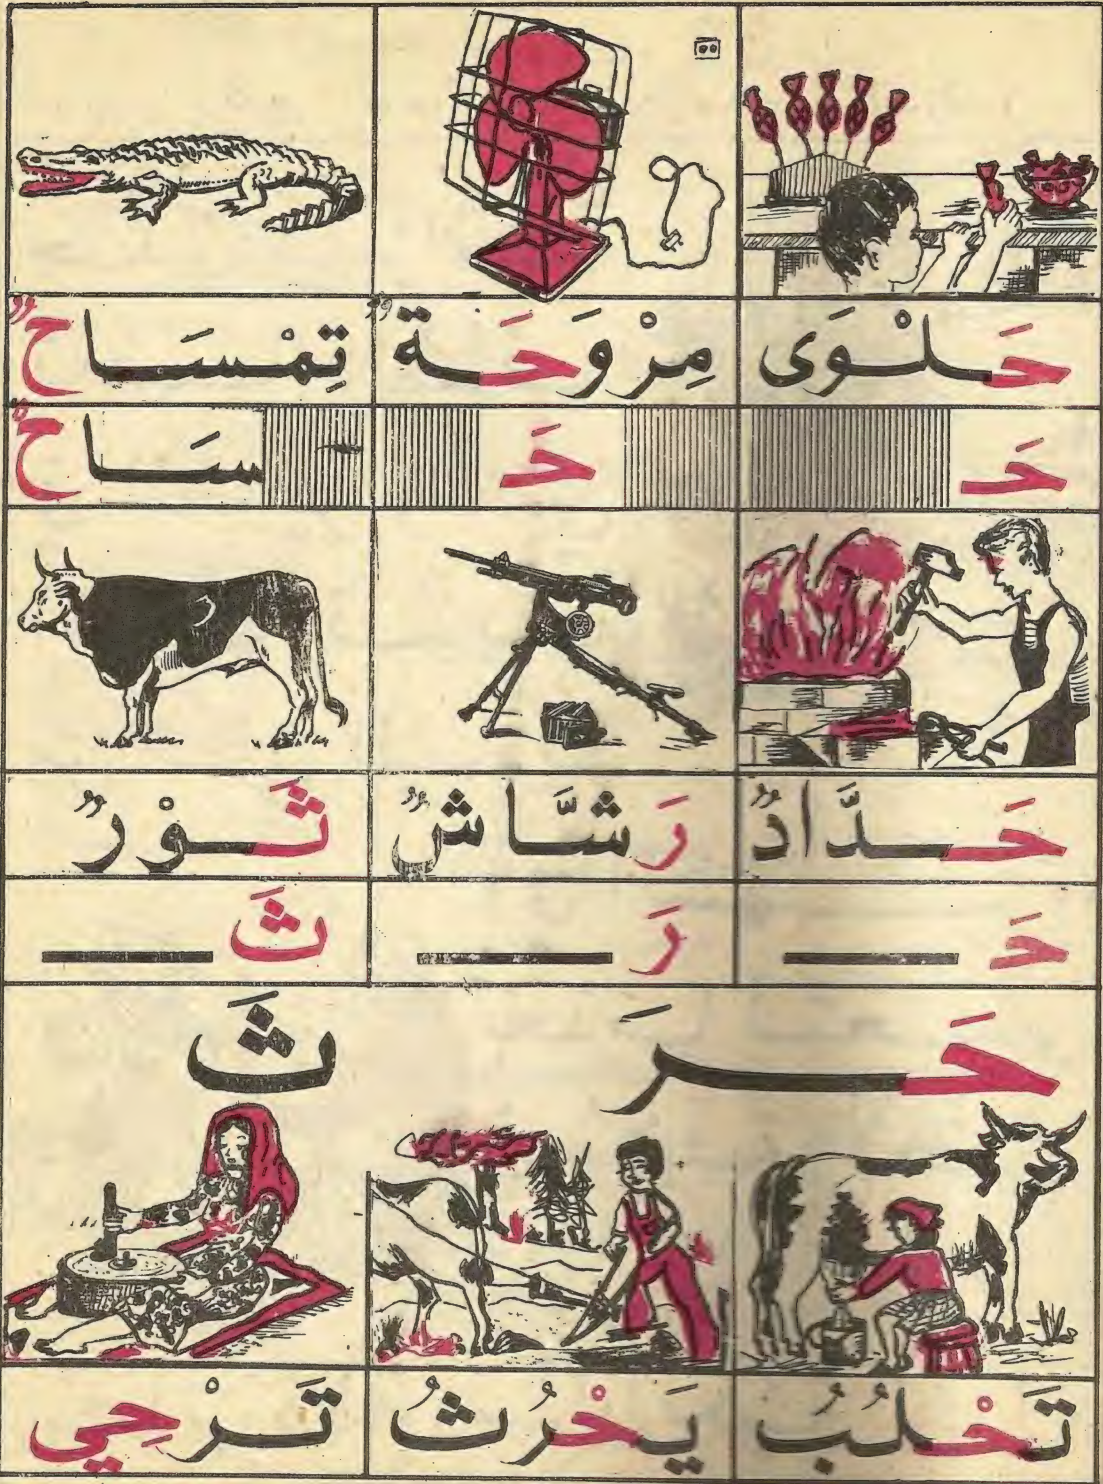 حَلْوَى مِرْوَحَةٌ تِمْسَاحٌ
حَ حَ سَاحٌ
حَدَّادٌ رَشَّاشٌ ثَوْرٌ
حَ رَ ثَ
حَـرَ ثَ
تَحْلُبُ يَحْرُثُ تَرْحِي